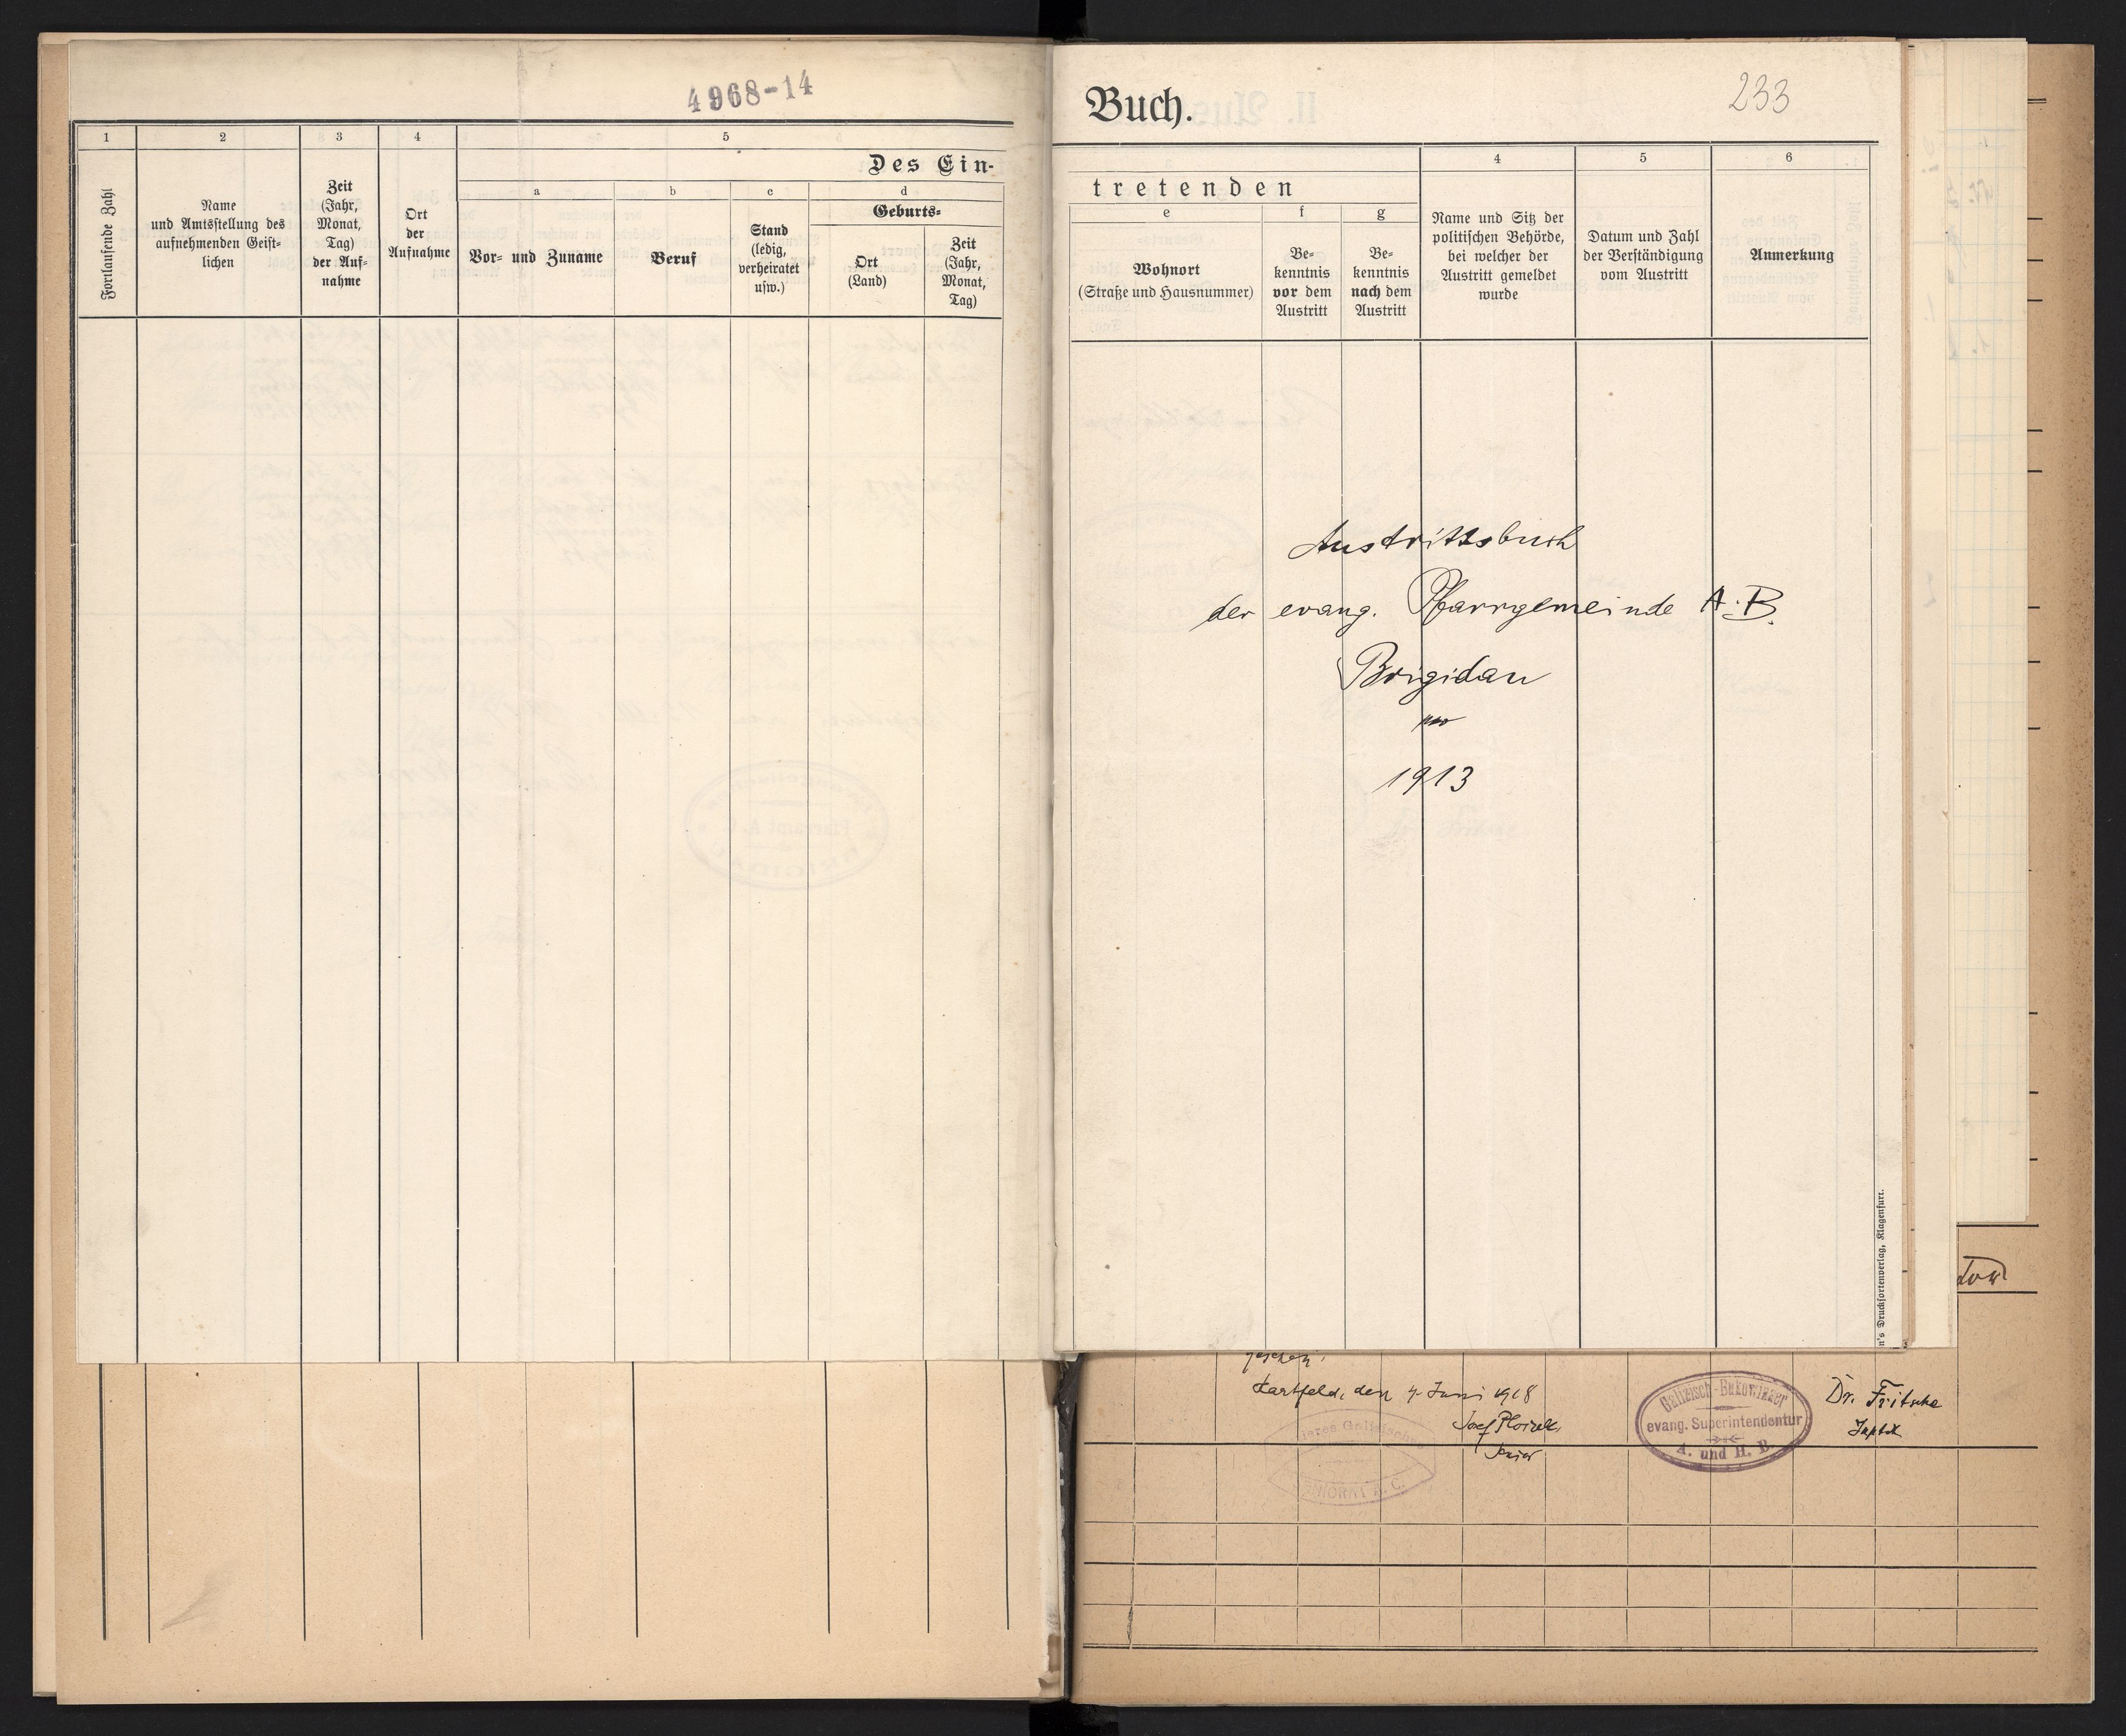 4968-14
1
2
3
4
5
Des Ein-
a
b
c
d
Fortlaufende Zahl
Name
und Amtsstellung des
aufnehmenden Geist-
lichen
Zeit
(Jahr,
Monat,
Tag)
der Auf-
nahme
Ort
der
Aufnahme
Vor- und Zuname
Beruf
Stand
(ledig,
verheiratet
usw.)
Geburts-
Ort
(Land)
Zeit
(Jahr,
Monat,
Tag)
Buch.
233
tretenden
4
5
6
e
f
g
Wohnort
(Straße und Hausnummer)
Be-
kenntnis
vor dem
Austritt
Be-
kenntnis
nach dem
Austritt
Name und Sitz der
politischen Behörde,
bei welcher der
Austritt gemeldet
wurde
Datum und Zahl
der Verständigung
vom Austritt
Anmerkung
Austrittsbuch
der evang. Pfarrgemeinde A. B.
Brigidau
pro
1913
n's Druckfortenverlag, Klagenfurt.
den 4. Juni 1918
Josef
Galizisch-Bukowinaer
evang. Superintendentur
A. und H. B.
Dr. Fritsche